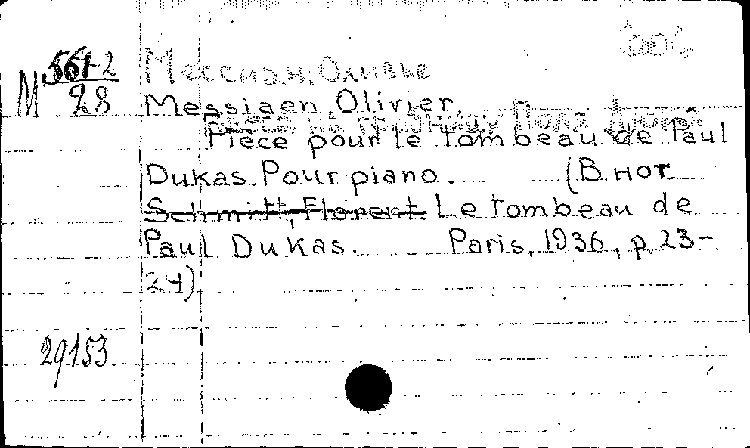 М 561-2
28
Мессиан, Оливье
Messiaen, Olivier.
Pièce pour le Tombeau de Paul
Dukas. Pour piano. (В нот
Schmitt, Florent. Le tombeau de
Paul Dukas. Paris, 1936, p. 23-
24)
29153